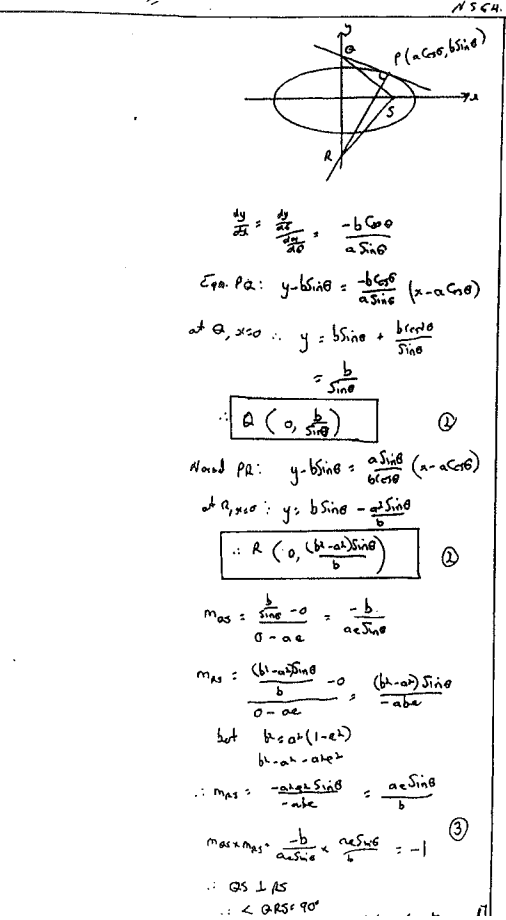 NSGH.
y
Q
P(a Cosθ, b Sinθ)
x
S
R
dy/dx = dy/dθ / dx/dθ = -b Cosθ / a Sinθ
Eqn. PQ: y - b Sinθ = -b Cosθ / a Sinθ (x - a Cosθ)
at Q, x=0 ∴ y = b Sinθ + b cos²θ / Sinθ
= b / Sinθ
∴ Q (0, b / Sinθ) ②
Normal PR: y - b Sinθ = a Sinθ / b cosθ (x - a Cosθ)
at R, x=0 ∴ y = b Sinθ - a² Sinθ / b
∴ R (0, (b²-a²) Sinθ / b) ②
m QS = b / Sinθ - 0 / 0 - ae = -b / ae Sinθ
m RS = (b²-a²) Sinθ / b - 0 / 0 - ae = (b²-a²) Sinθ / -abe
but b² = a²(1-e²)
b²-a² = -a²e²
∴ m RS = -a²e² Sinθ / -abe = ae Sinθ / b
③
m QS × m RS = -b / ae Sinθ × ae Sinθ / b = -1
∴ QS ⊥ RS
∴ < QRS = 90°